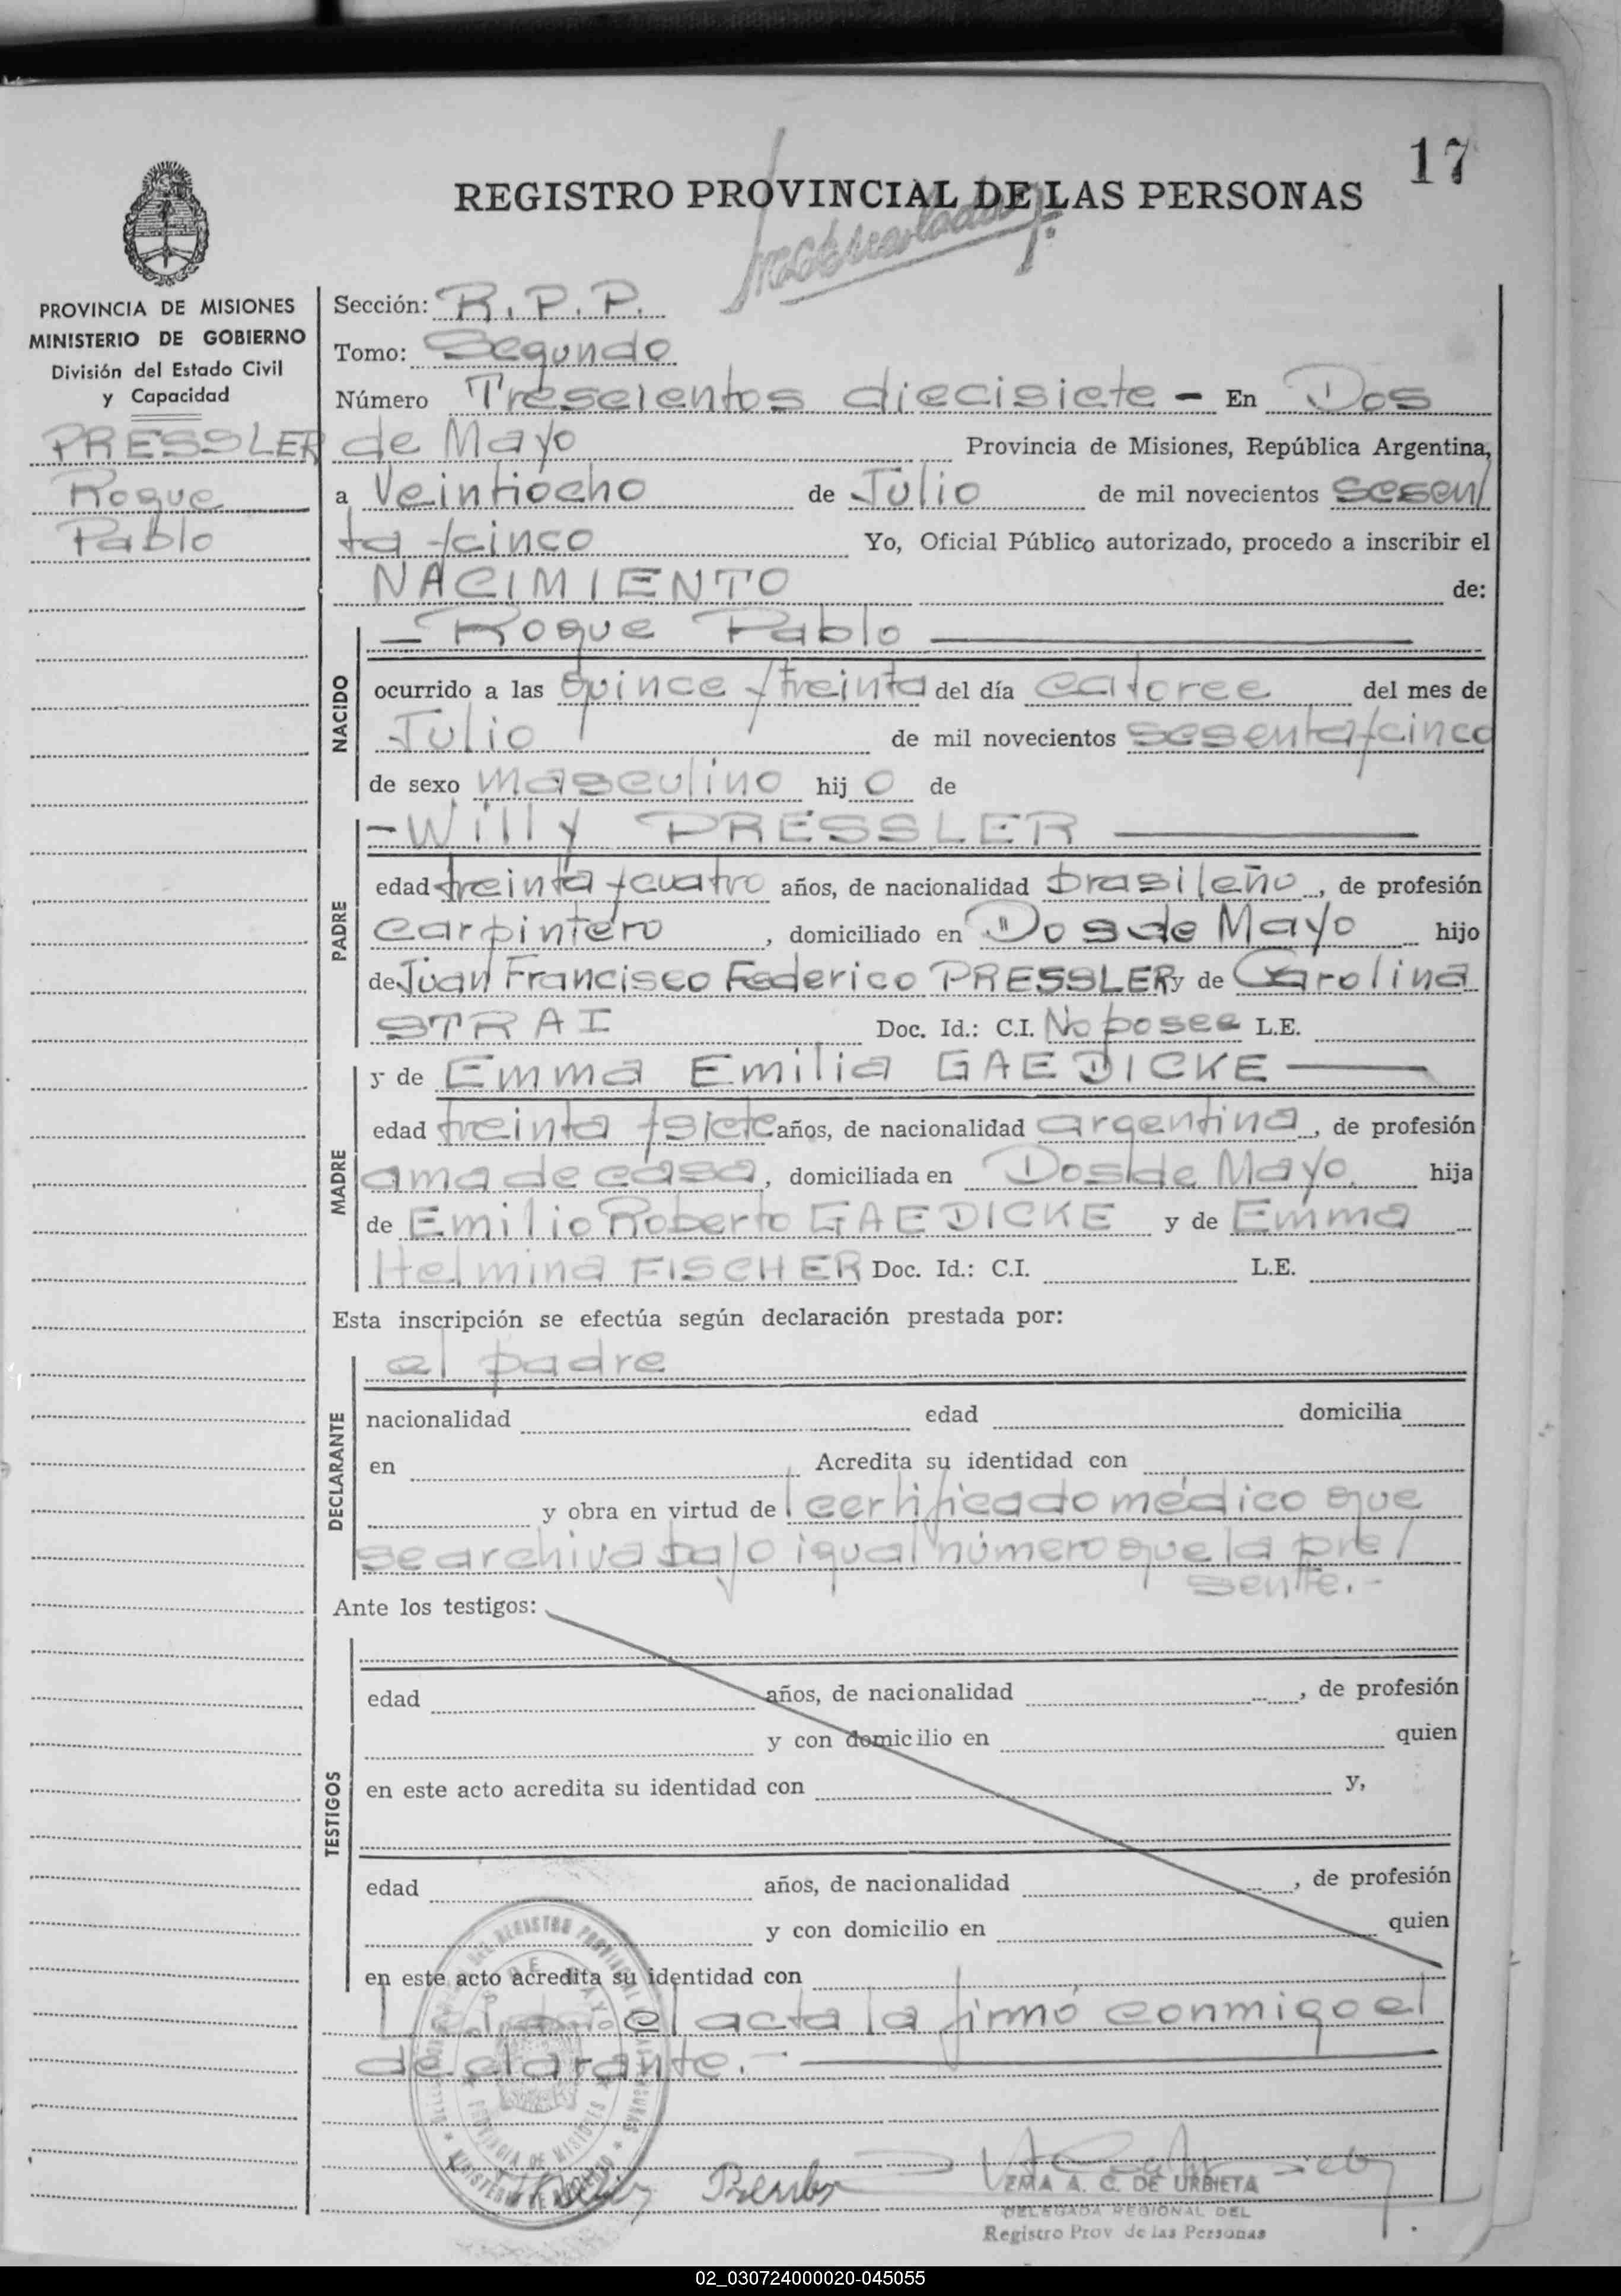 17
REGISTRO PROVINCIAL DE LAS PERSONAS
PROVINCIA DE MISIONES
MINISTERIO DE GOBIERNO
División del Estado Civil
y Capacidad
PRESSLER
Roque
Pablo
Sección: R.P.P.
Tomo: Segundo
Número Trescientos diecisiete - En Dos
de Mayo Provincia de Misiones, República Argentina,
a Veintiocho de Julio de mil novecientos sesen/
ta y cinco Yo, Oficial Público autorizado, procedo a inscribir el
NACIMIENTO de:
NACIDO
— Roque Pablo —
ocurrido a las quince y treinta del día catorce del mes de
Julio de mil novecientos sesenta y cinco
de sexo masculino hij o de
PADRE
- Willy PRESSLER —
edad treinta y cuatro años, de nacionalidad brasileño, de profesión
carpintero, domiciliado en Dos de Mayo hijo
de Juan Francisco Federico PRESSLER y de Carolina
STRAI Doc. Id.: C.I. No posee L.E.
MADRE
y de Emma Emilia GAEDICKE —
edad treinta y siete años, de nacionalidad argentina, de profesión
ama de casa, domiciliada en Dos de Mayo. hija
de Emilio Roberto GAEDICKE y de Emma
Helmina FISCHER Doc. Id.: C.I. L.E.
Esta inscripción se efectúa según declaración prestada por:
DECLARANTE
el padre
nacionalidad edad domicilia
en Acredita su identidad con
y obra en virtud de certificado médico que
se archiva bajo igual número que la pre/
sente.-
Ante los testigos:
TESTIGOS
edad años, de nacionalidad , de profesión
y con domicilio en quien
en este acto acredita su identidad con y,
edad años, de nacionalidad , de profesión
y con domicilio en quien
en este acto acredita su identidad con
Leída el acta la firmó conmigo el
declarante.- —
EMA A. C. DE URBIETA
DELEGADA REGIONAL DEL
Registro Prov de las Personas
02_030724000020-045055